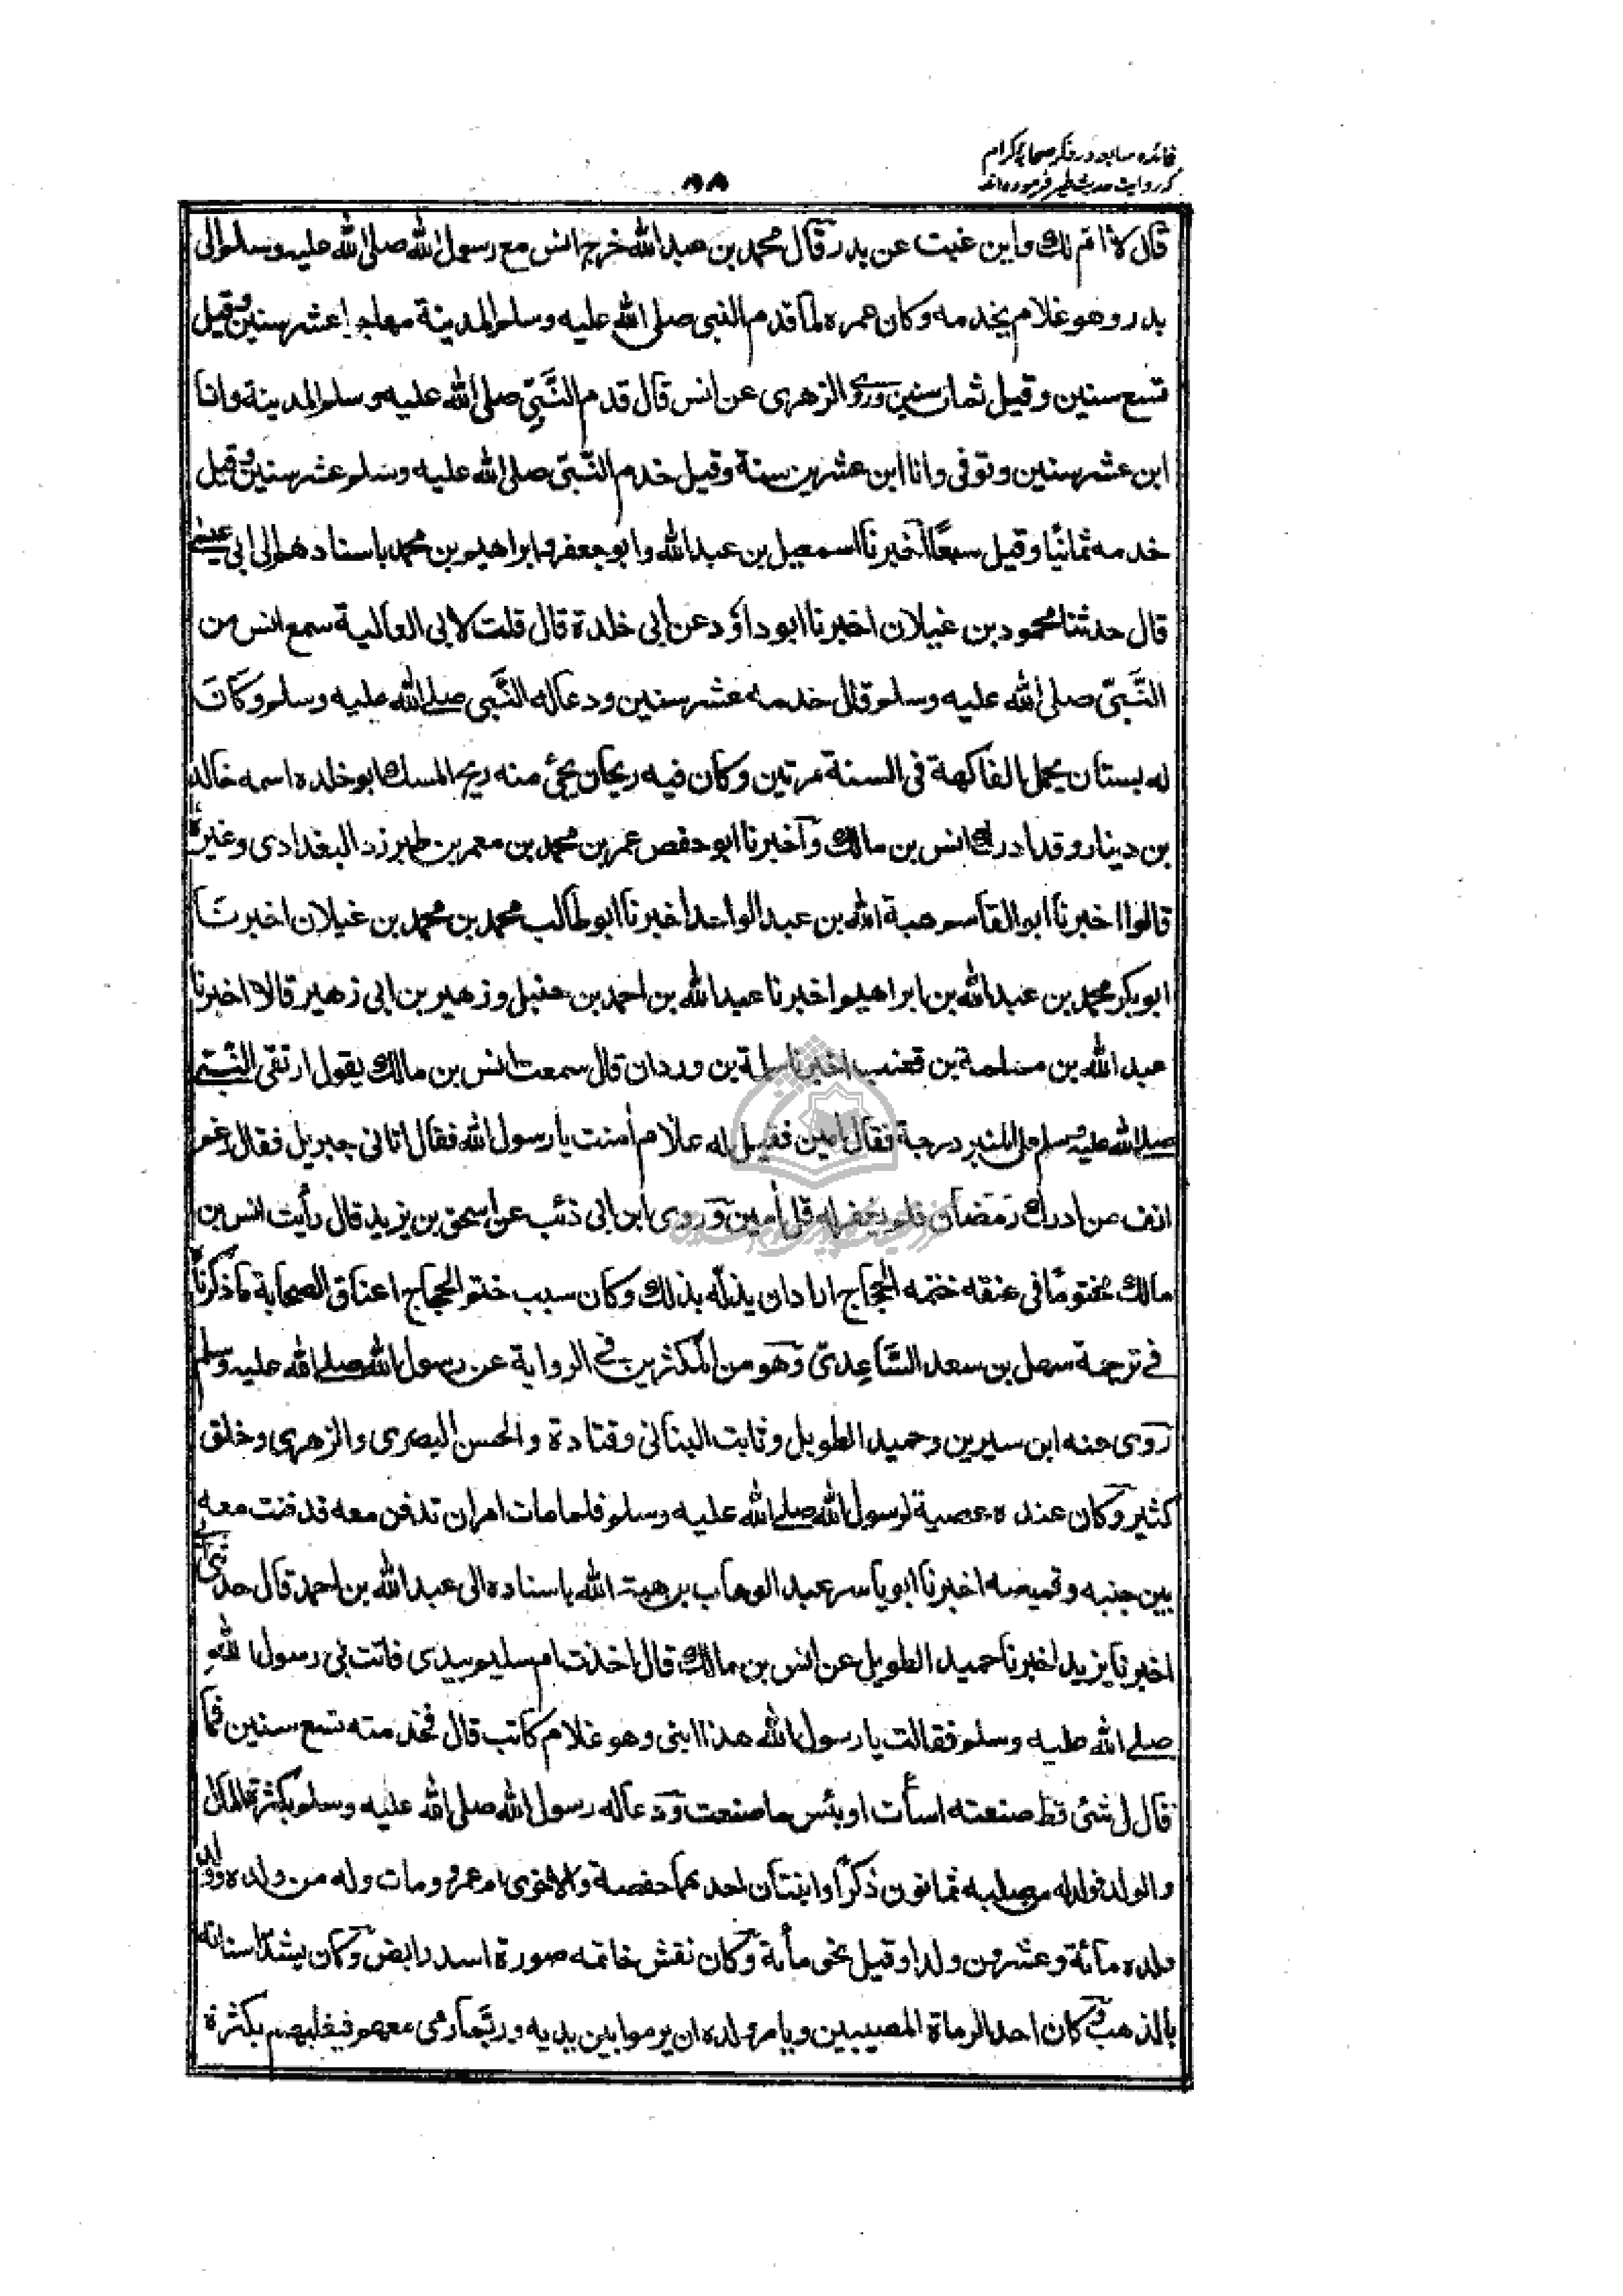 فائده سابعه در ذکر صحابه کرام
که روایت حدیث طیر فرموده‌اند
٨٨
قال لا ام لك واين غبت عن بدر قال محمد بن عبد الله خرج انس مع رسول الله صلى الله عليه وسلم الى
بدر وهو غلام يخدمه وكان عمره لما قدم النبى صلى الله عليه وسلم المدينة مهاجرا عشر سنين وقيل
تسع سنين وقيل ثمان سنين وروى الزهرى عن انس قال قدم النَّبِىّ صلى الله عليه وسلم المدينة وانا
ابن عشر سنين وتوفى وانا ابن عشرين سنة وقيل خدم النَّبىّ صلى الله عليه وسلم عشر سنين وقيل
خدمه ثمانيًا وقيل سبعًا اخبرنا اسمعيل بن عبد الله وابو جعفر وابراهيم بن محمد باسنادهم الى ابى عيسى
قال حدثنا محمود بن غيلان اخبرنا ابو داؤد عن ابى خلدة قال قلت لابى العالية سمع انس من
النَّبىّ صلى الله عليه وسلم قال خدمه عشر سنين ودعا له النَّبى صلى الله عليه وسلم وكَانَ
له بستان يحمل الفاكهة فى السنة مرتين وكان فيه ريحان يجئ منه ريح المسك ابو خلده اسمه خالد
بن دينار وقد ادرك انس بن مالك وآخبرنا ابو حفص عمر بن محمد بن معمر بن طبرزد البغدادى وغيره
قالوا اخبرنا ابو القاسم هبة الله بن عبد الواحد اخبرنا ابو طالب محمد بن محمد بن غيلان اخبرنا
ابو بكر محمد بن عبد الله بن ابراهيم اخبرنا عبد الله بن احمد بن حنبل وزهير بن ابى زهير قالا اخبرنا
عبد الله بن مسلمة بن قعنب اخبرنا سلمة بن وردان قال سمعت انس بن مالك يقول ارتقى النَّبىّ
صلى الله عليه وسلم على المنبر درجة فقال امين فقيل له علام امنت يا رسول الله فقال اتانى جبريل فقال رغم
انف من ادرك رَمَضان فلم يغفر له قل امين وَروى ابن ابى ذئب عن اسحق بن يزيد قال رأيت انس بن
مالك مختومًا فى عنقه ختمه الحجاج اراد ان يذلّه بذلك وكان سبب ختم الحجاج اعناق الصحابة ما ذكرناه
فى ترجمة سهل بن سعد السَّاعِدىّ وَهو من المكثرين فى الرواية عن رسول الله صلى الله عليه وسلم
رَوى عنه ابن سيرين وحميد الطويل وثابت البنانى وقتادة والحسن البصرى والزهرى وخلق
كثير وَكان عنده عصية لرسول الله صلى الله عليه وسلم فلما مات امر ان تدفن معه فدفنت معه
بين جنبه وقميصه اخبرنا ابو ياسر عبد الوهاب بن هبة الله باسناده الى عبد الله بن احمد قال حدثنى ابى
اخبرنا يزيد اخبرنا حميد الطويل عن انس بن مالك قال اخذت ام سليم بيدى فاتت بى رسول اللهِ
صلى الله عليه وسلم فقالت يا رسول الله هذا ابنى وهو غلام كاتب قال فخدمته تسع سنين فما
قال لى شئ قط صنعته اسأت او بئس ما صنعت وَدعا له رسول الله صلى الله عليه وسلم بكثرة المال
والولد فولد له من صلبه ثمانون ذكرًا وابنتان احدهما حفصة والاخرى ام عمرو ومات وله من ولده وولد
ولده مائة وعشرون ولدا وقيل نحو مأة وَكان نقش خاتمه صورة اسد رابض وَكان يشد اسنانه
بالذهب وَكان احد الرماة المصيبين ويامر ولده ان يرموا بين يديه وربَّما رمى معهم فيغلبهم بكثرة